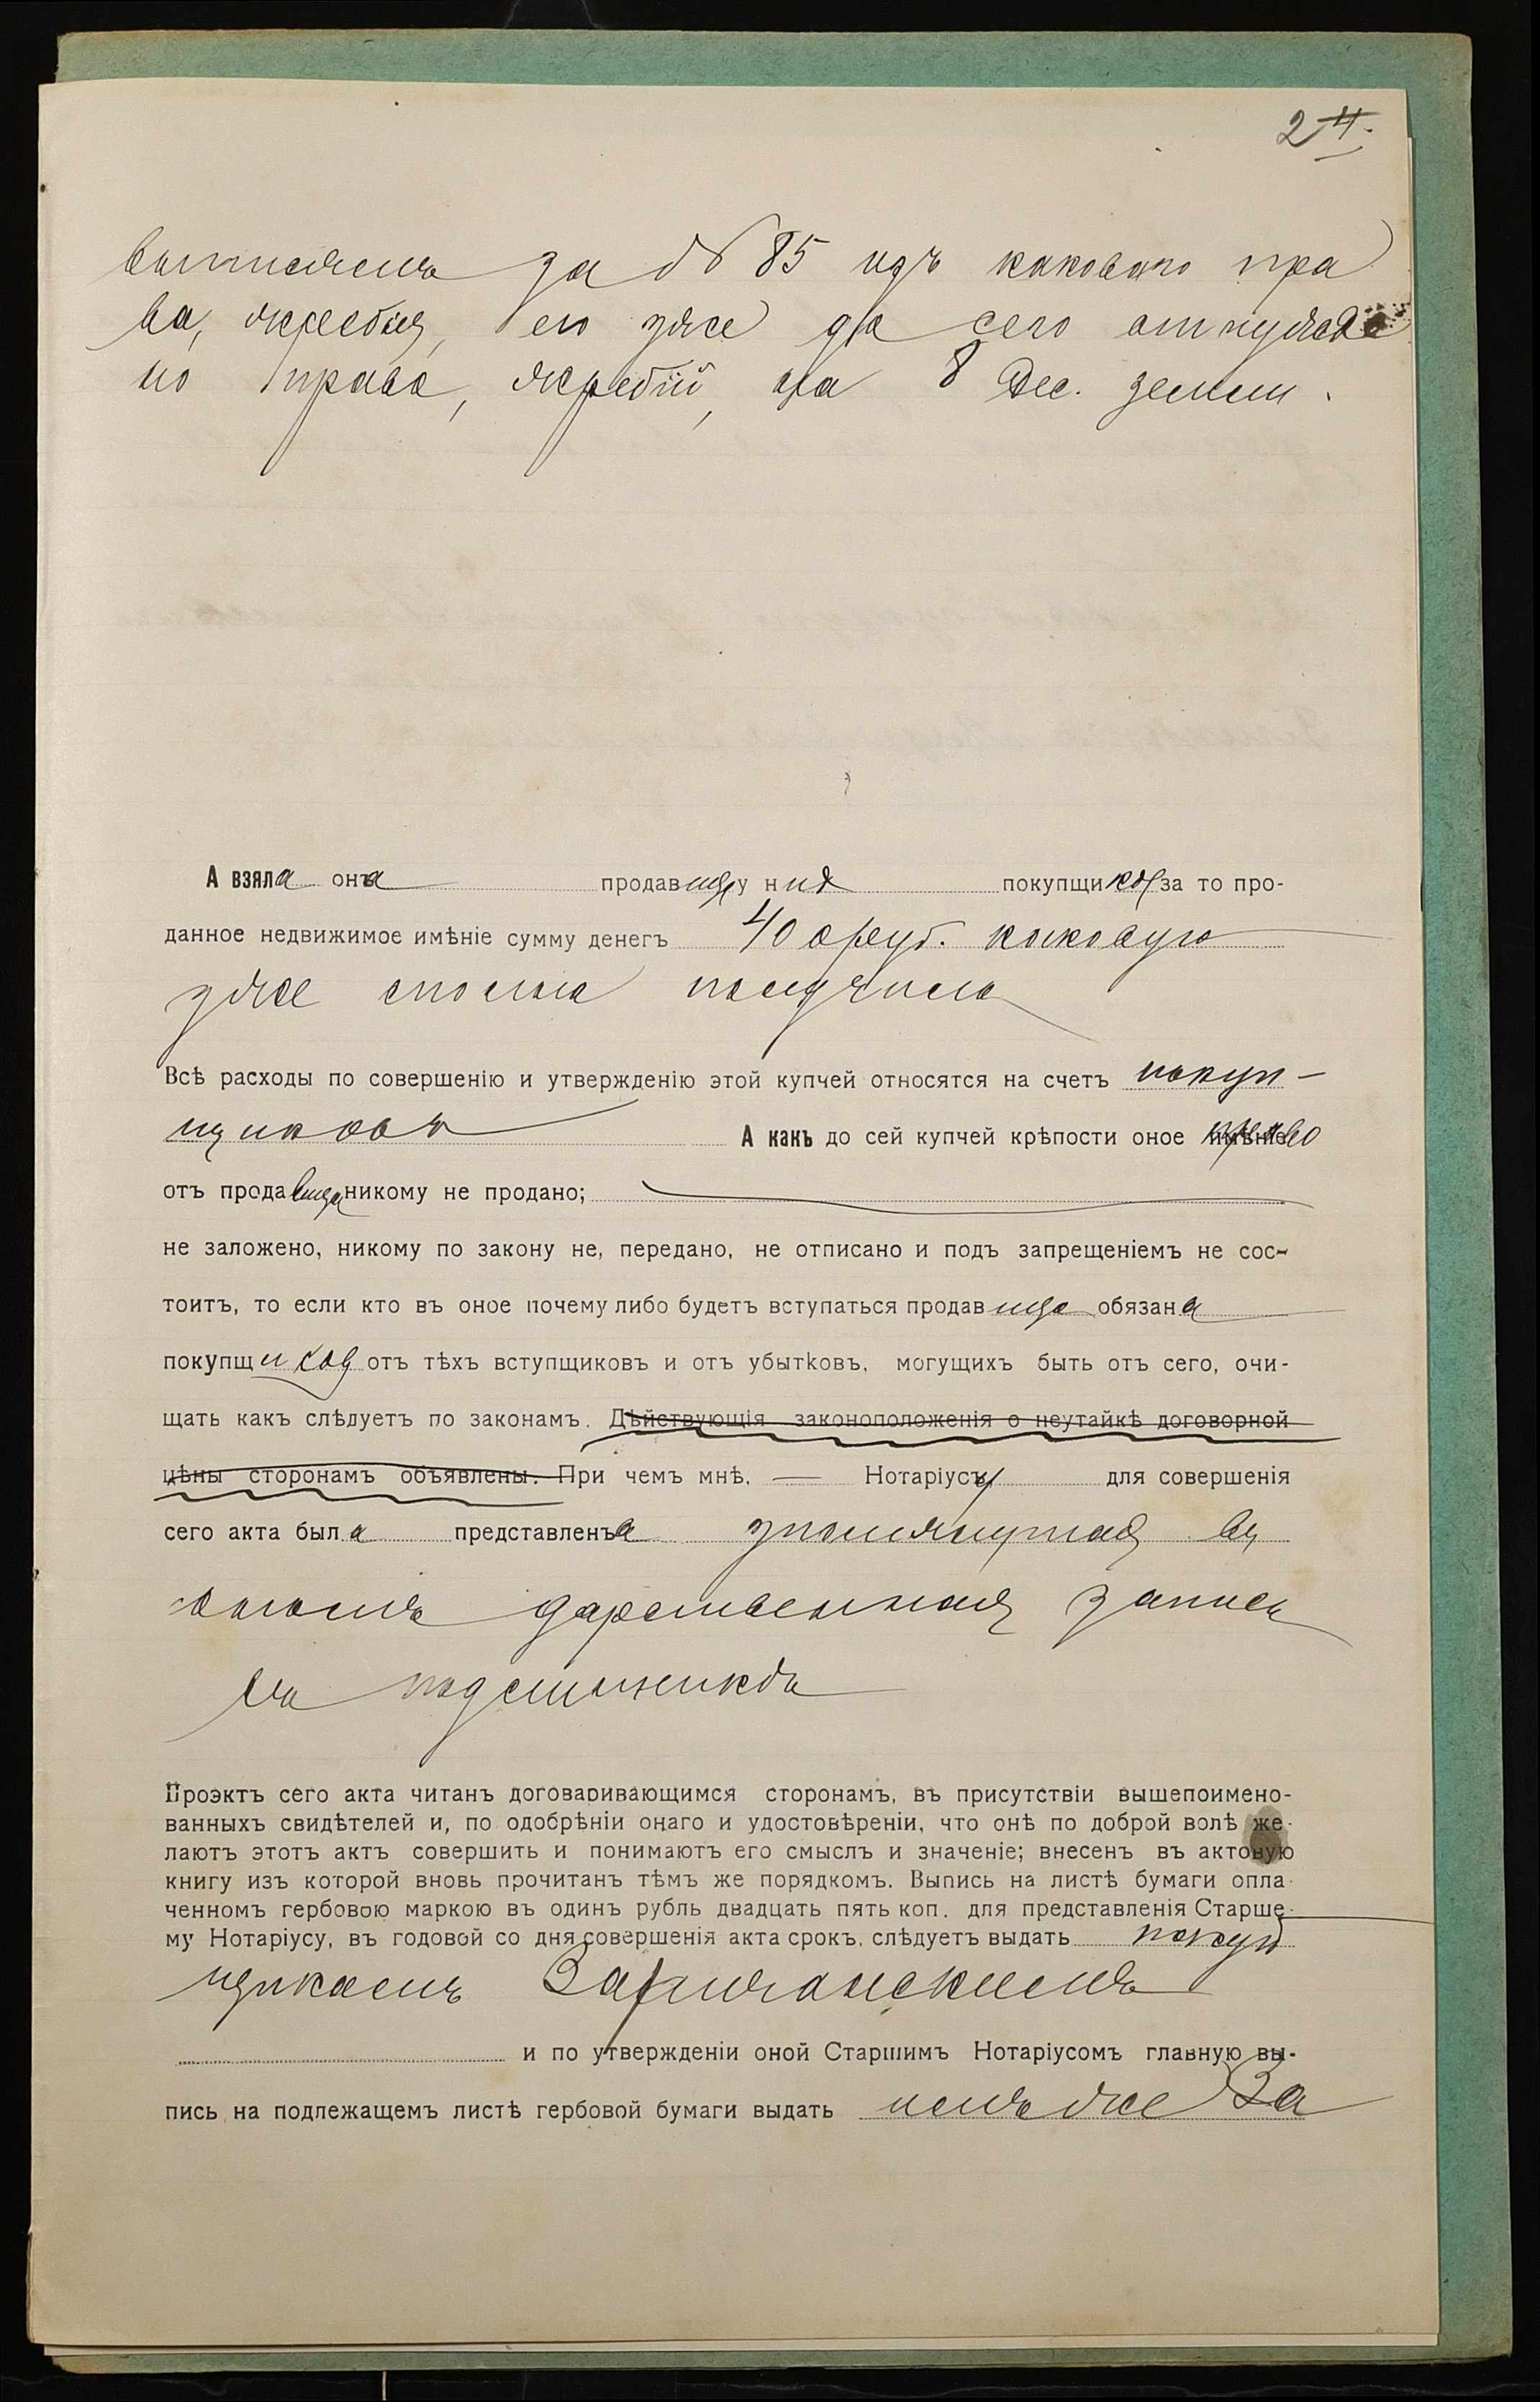 24.
за № 85 изъ каковаго пра
ва, жребія, ею уже до сего отчужде
но право, жребій, на 8 дес. земли.
А взяла она продавица у нихъ покупщиковъ за то про-
данное недвижимое имѣніе сумму денегъ 400 руб. каковую
уже сполна получила
Всѣ расходы по совершенію и утвержденію этой купчей относятся на счетъ покуп-
щиковъ А какъ до сей купчей крѣпости оное право
отъ продавицы никому не продано;
не заложено, никому по закону не, передано, не отписано и подъ запрещеніемъ не сос-
тоитъ, то если кто въ оное почему либо будетъ вступаться продавица обязана
покупщиковъ отъ тѣхъ вступщиковъ и отъ убытковъ, могущихъ быть отъ сего, очи-
щать какъ слѣдуетъ по законамъ. Дѣйствующія законоположенія о неутайкѣ договорной
цѣны сторонамъ объявлены. При чемъ мнѣ, — Нотаріусу для совершенія
сего акта была представлена упомянутая вы
дарственная запись
въ подлинникѣ
Проэктъ сего акта читанъ договаривающимся сторонамъ, въ присутствіи вышепоимено-
ванныхъ свидѣтелей и, по одобрѣніи онаго и удостовѣреніи, что онѣ по доброй волѣ же-
лаютъ этотъ актъ совершить и понимаютъ его смыслъ и значеніе; внесенъ въ актовую
книгу изъ которой вновь прочитанъ тѣмъ же порядкомъ. Выпись на листѣ бумаги опла-
ченномъ гербовою маркою въ одинъ рубль двадцать пять коп. для представленія Старше-
му Нотаріусу, въ годовой со дня совершенія акта срокъ, слѣдуетъ выдать покуп
щикамъ
и по утвержденіи оной Старшимъ Нотаріусомъ главную вы-
пись на подлежащемъ листѣ гербовой бумаги выдать имъ же За